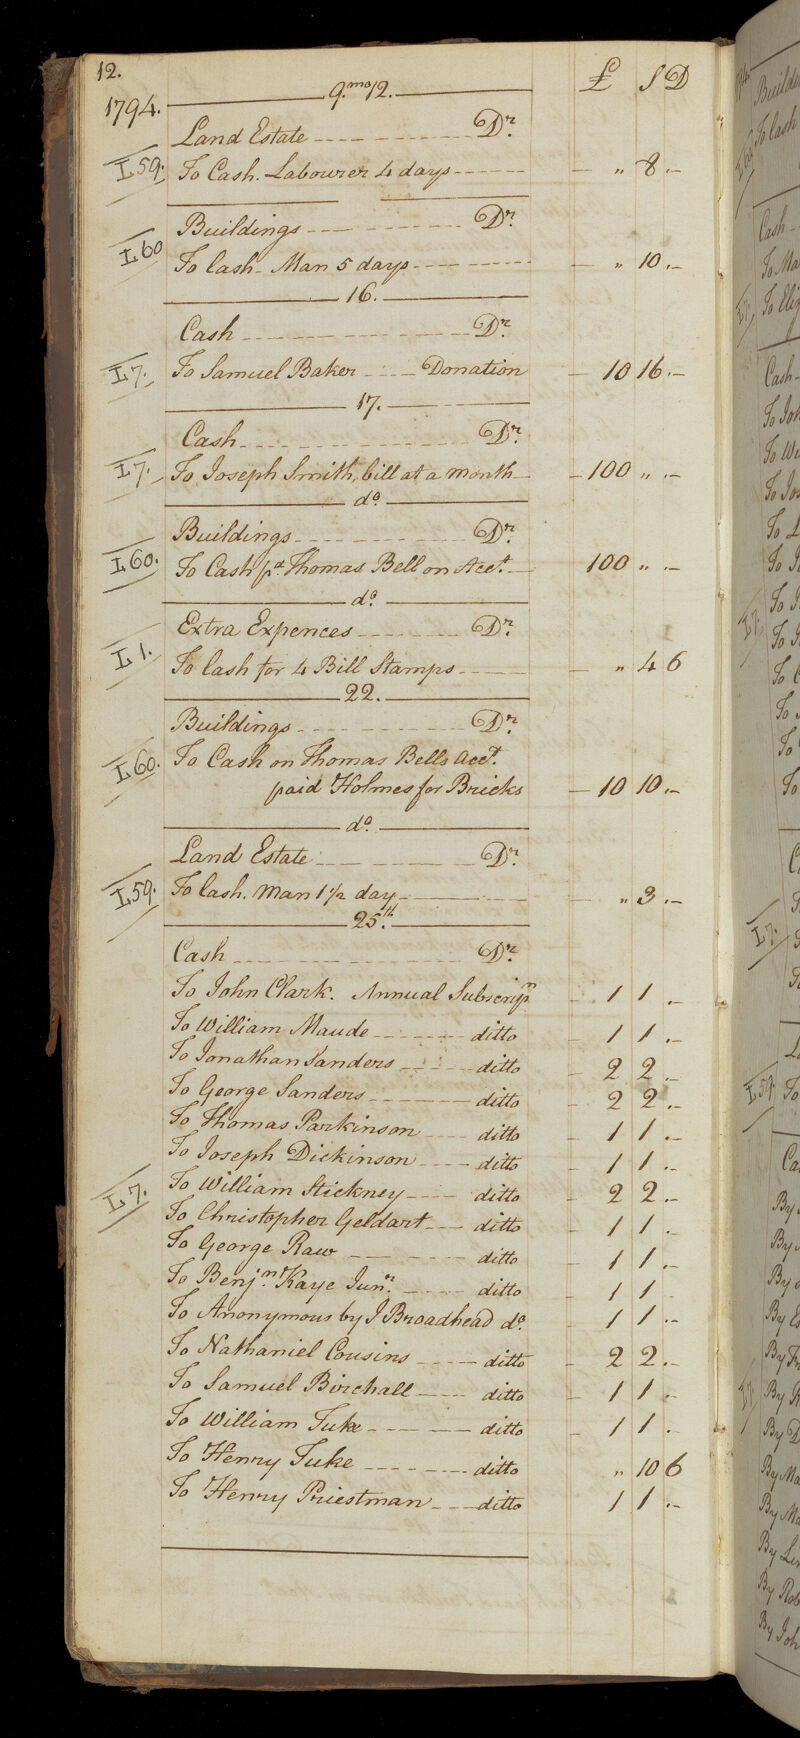 12.
£ S D
1794. 9.mo 12.
Land Estate Dr.
L 59. To Cash. Labourer 4 days - " 8 . -
Buildings Dr.
L 60 To Cash - Man 5 days - " 10 . -
16.
Cash Dr.
L 7. To Samuel Baker Donation - 10 16 . -
17.
Cash Dr.
L 7. To Joseph Smith, bill at a month - 100 " . -
do.
Buildings Dr.
L 60. To Cash pd. Thomas Bell on Acct. 100 " . -
do.
Extra Expences Dr.
L 1. To Cash for 4 Bill Stamps - " 4 6
22.
Buildings Dr.
L 60. To Cash on Thomas Bells Acct.
paid Holmes for Bricks - 10 10 . -
do.
Land Estate Dr.
L 59. To Cash. Man 1 1/2 day " 3 . -
25th.
Cash Dr.
To John Clark. Annual Subscripn - 1 1 . -
To William Maude ditto - 1 1 . -
To Jonathan Sanders ditto - 2 2 . -
To George Sanders ditto - 2 2 . -
To Thomas Parkinson ditto - 1 1 . -
To Joseph Dickinson ditto - 1 1 . -
L 7. To William Stickney ditto - 2 2 . -
To Christopher Geldart ditto - 1 1 . -
To George Raw ditto - 1 1 . -
To Benjn. Kaye Junr. ditto - 1 1 . -
To Anonymous by J Broadhead do. - 1 1 . -
To Nathaniel Cousins ditto - 2 2 . -
To Samuel Birchall ditto - 1 1 . -
To William Tuke ditto - 1 1 .
To Henry Tuke ditto " 10 6
To Henry Priestman ditto 1 1 . -